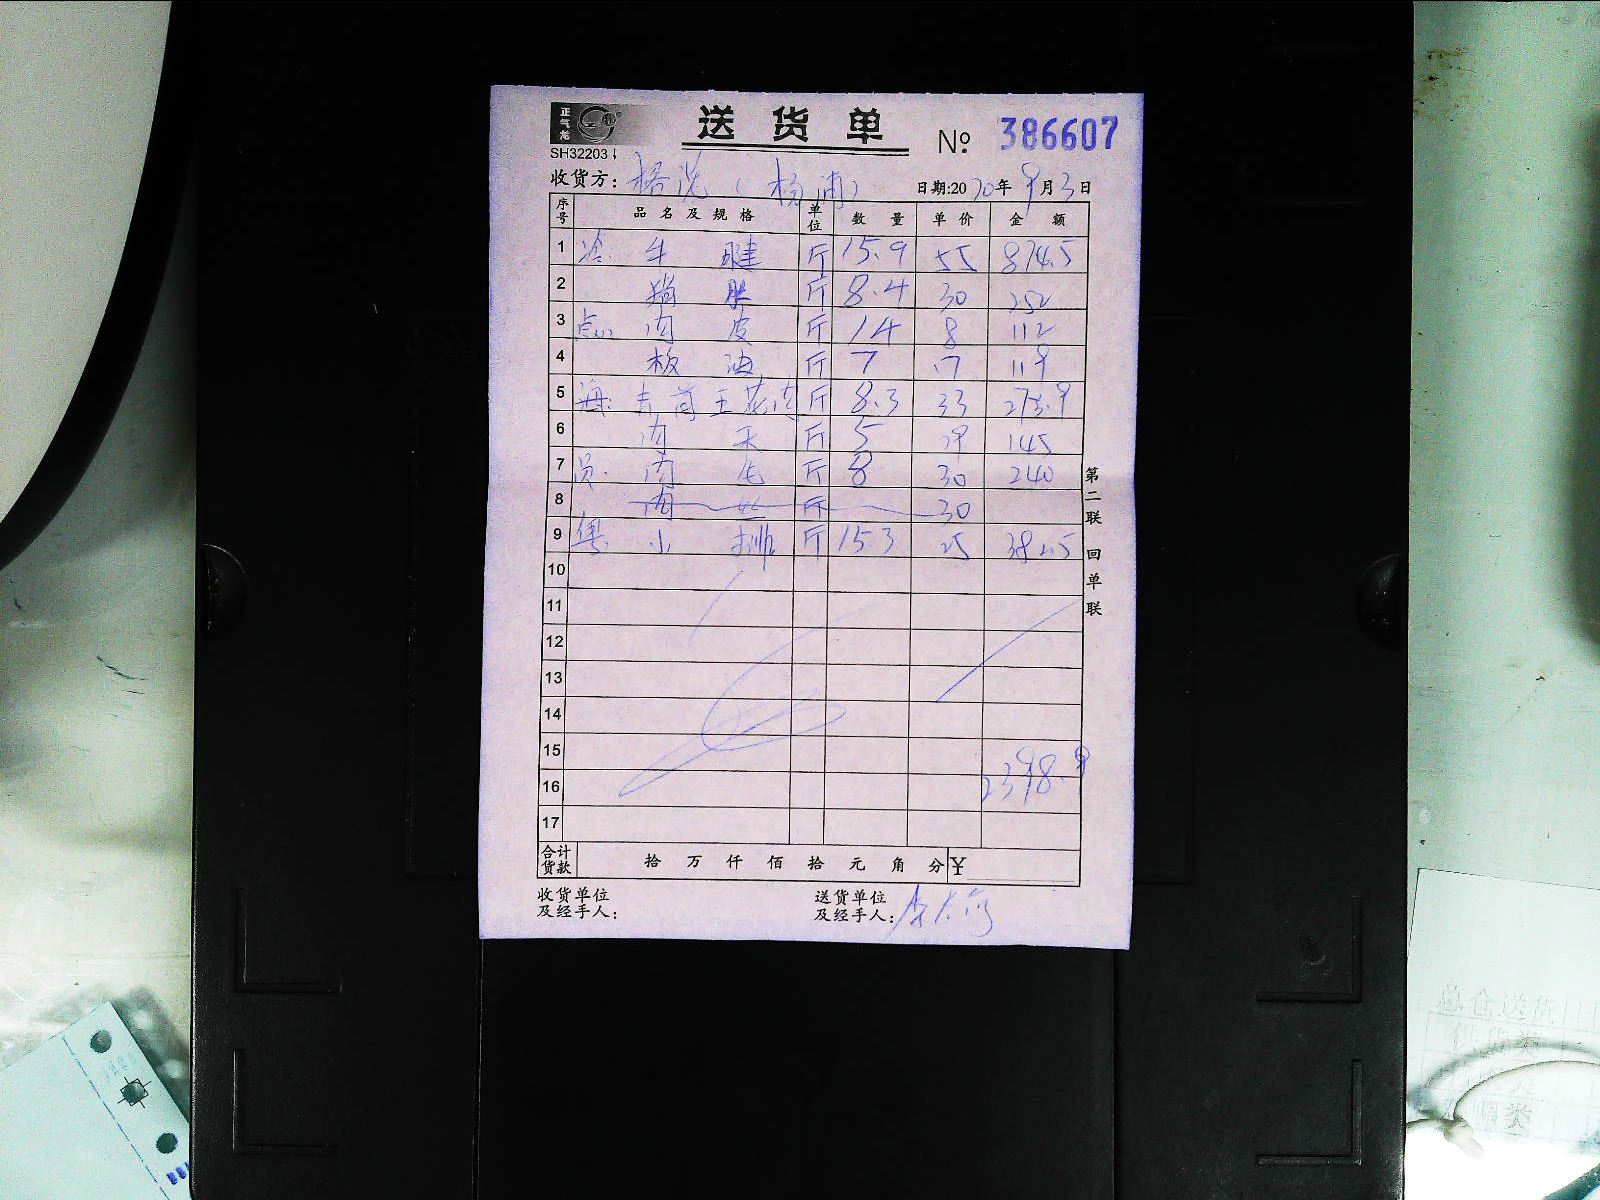 正气龙
送货单 № 386607
SH32203
收货方: (杨浦) 日期:2020年9月3日
序号 品名及规格 单位 数量 单价 金额
1 冷: 牛腱 斤 15.9 55 874.5
2 斤 8.4 30 252
3 点心 肉皮 斤 14 8 112
4 板油 斤 7 17 119
5 海: 五花肉 斤 8.3 33 273.9
6 肉 斤 5 29 145
7 员: 肉 斤 8 30 240
8 肉丝 斤 30
9 粤: 小排 斤 15.3 25 382.5
10
11
12
13
14
15
16 2398.9
17
合计货款 拾万仟佰拾元角分 ¥
收货单位及经手人:
送货单位及经手人:
第二联 回单联
总仓送货